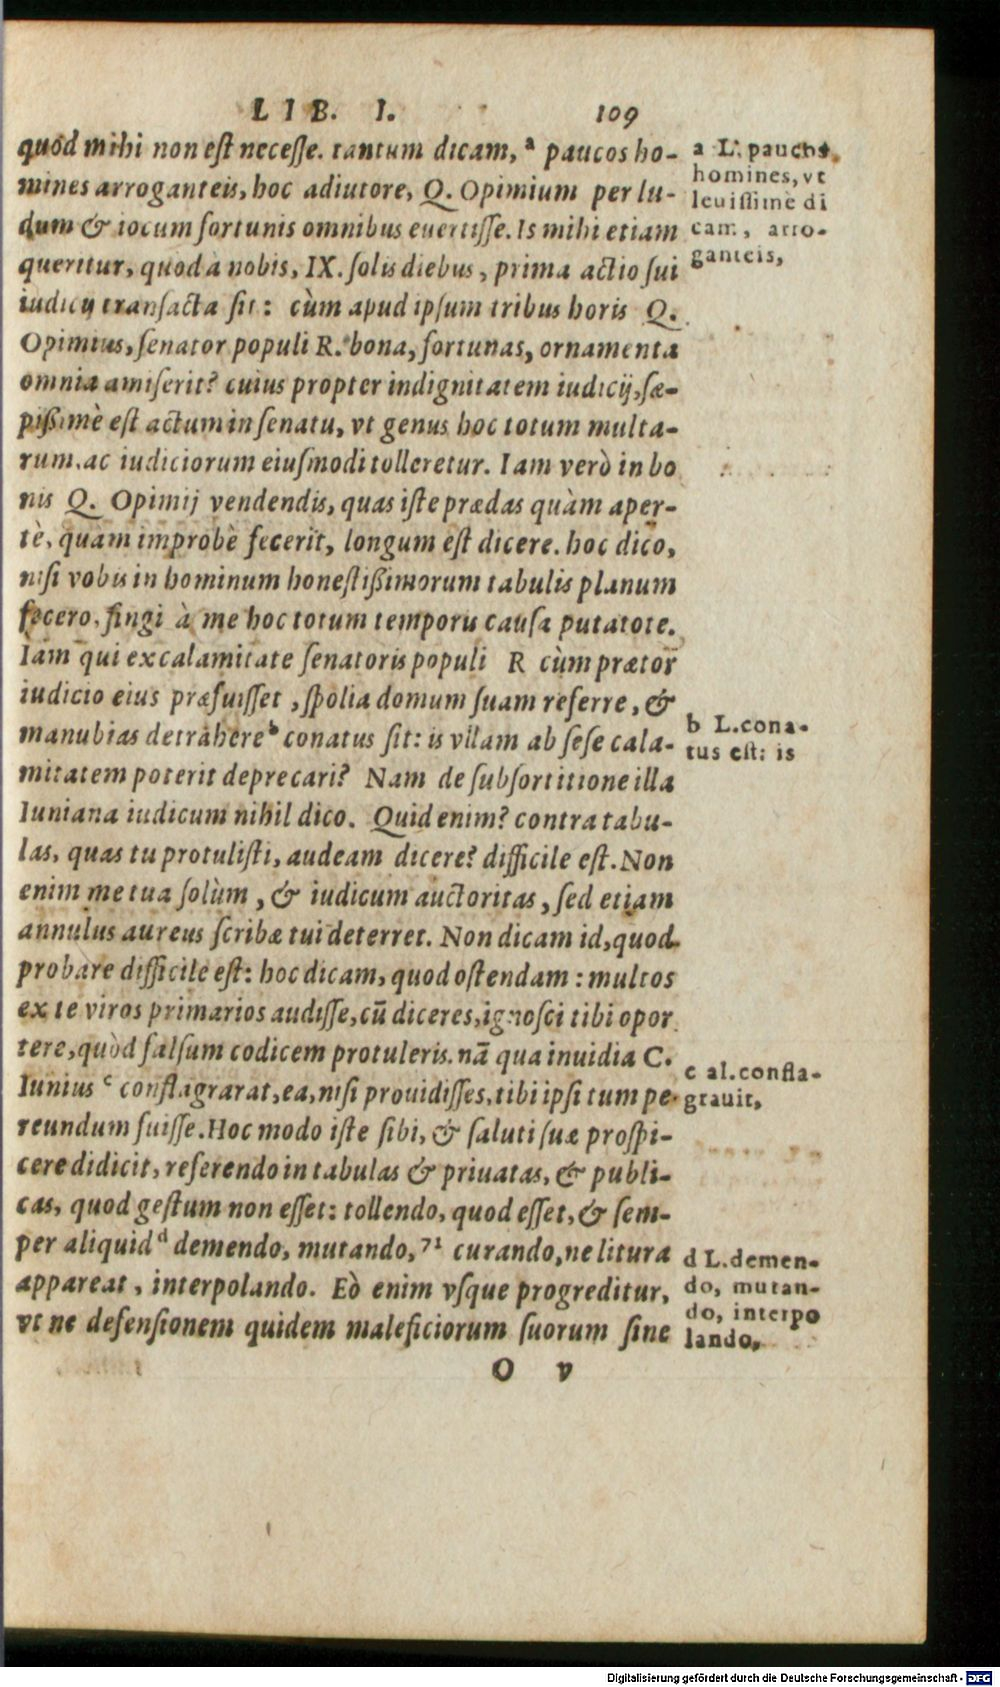 LIB. I. 109
quod mihi non est necesse. tantum dicam, a paucos ho-
mines arroganteis, hoc adiutore, Q. Opimium per lu-
dum & iocum fortunis omnibus euertisse. Is mihi etiam
queritur, quod à nobis, IX. solis diebus, prima actio sui
iudicij transacta sit: cùm apud ipsum tribus horis Q.
Opimius, senator populi R. bona, fortunas, ornamenta
omnia amiserit? cuius propter indignitatem iudicij, sæ-
pißimè est actum in senatu, vt genus hoc totum multa-
rum, ac iudiciorum eiusmodi tolleretur. Iam verò in bo
nis Q. Opimij vendendis, quas iste prædas quàm aper-
tè, quam improbè fecerit, longum est dicere. hoc dico,
nisi vobis in hominum honestißimorum tabulis planum
fecero, fingi à me hoc totum temporis causa putatote.
Iam qui ex calamitate senatoris populi R cùm prætor
iudicio eius præfuisset, spolia domum suam referre, &
manubias detrahere b conatus sit: is vllam ab sese cala-
mitatem poterit deprecari? Nam de subsortitione illa
Iuniana iudicum nihil dico. Quid enim? contra tabu-
las, quas tu protulisti, audeam dicere? difficile est. Non
enim me tua solùm, & iudicum auctoritas, sed etiam
annulus aureus scribæ tui deterret. Non dicam id, quod
probare difficile est: hoc dicam, quod ostendam: multos
ex te viros primarios audisse, cũ diceres, ignosci tibi opor
tere, quòd falsum codicem protuleris. nã qua inuidia C.
Iunius c conflagrarat, ea, nisi prouidisses, tibi ipsi tum pe-
reundum fuisse. Hoc modo iste sibi, & saluti suæ prospi-
cere didicit, referendo in tabulas & priuatas, & publi-
cas, quod gestum non esset: tollendo, quod esset, & sem-
per aliquid d demendo, mutando, 71 curando, ne litura
appareat, interpolando. Eò enim vsque progreditur,
vt ne defensionem quidem maleficiorum suorum sine
O v
a L. paucos
homines, vt
leuissimè di
cam, arro-
ganteis,
b L. cona-
tus est: is
c al. confla-
grauit,
d L. demen-
do, mutan-
do, interpo
lando,
Digitalisierung gefördert durch die Deutsche Forschungsgemeinschaft - DFG